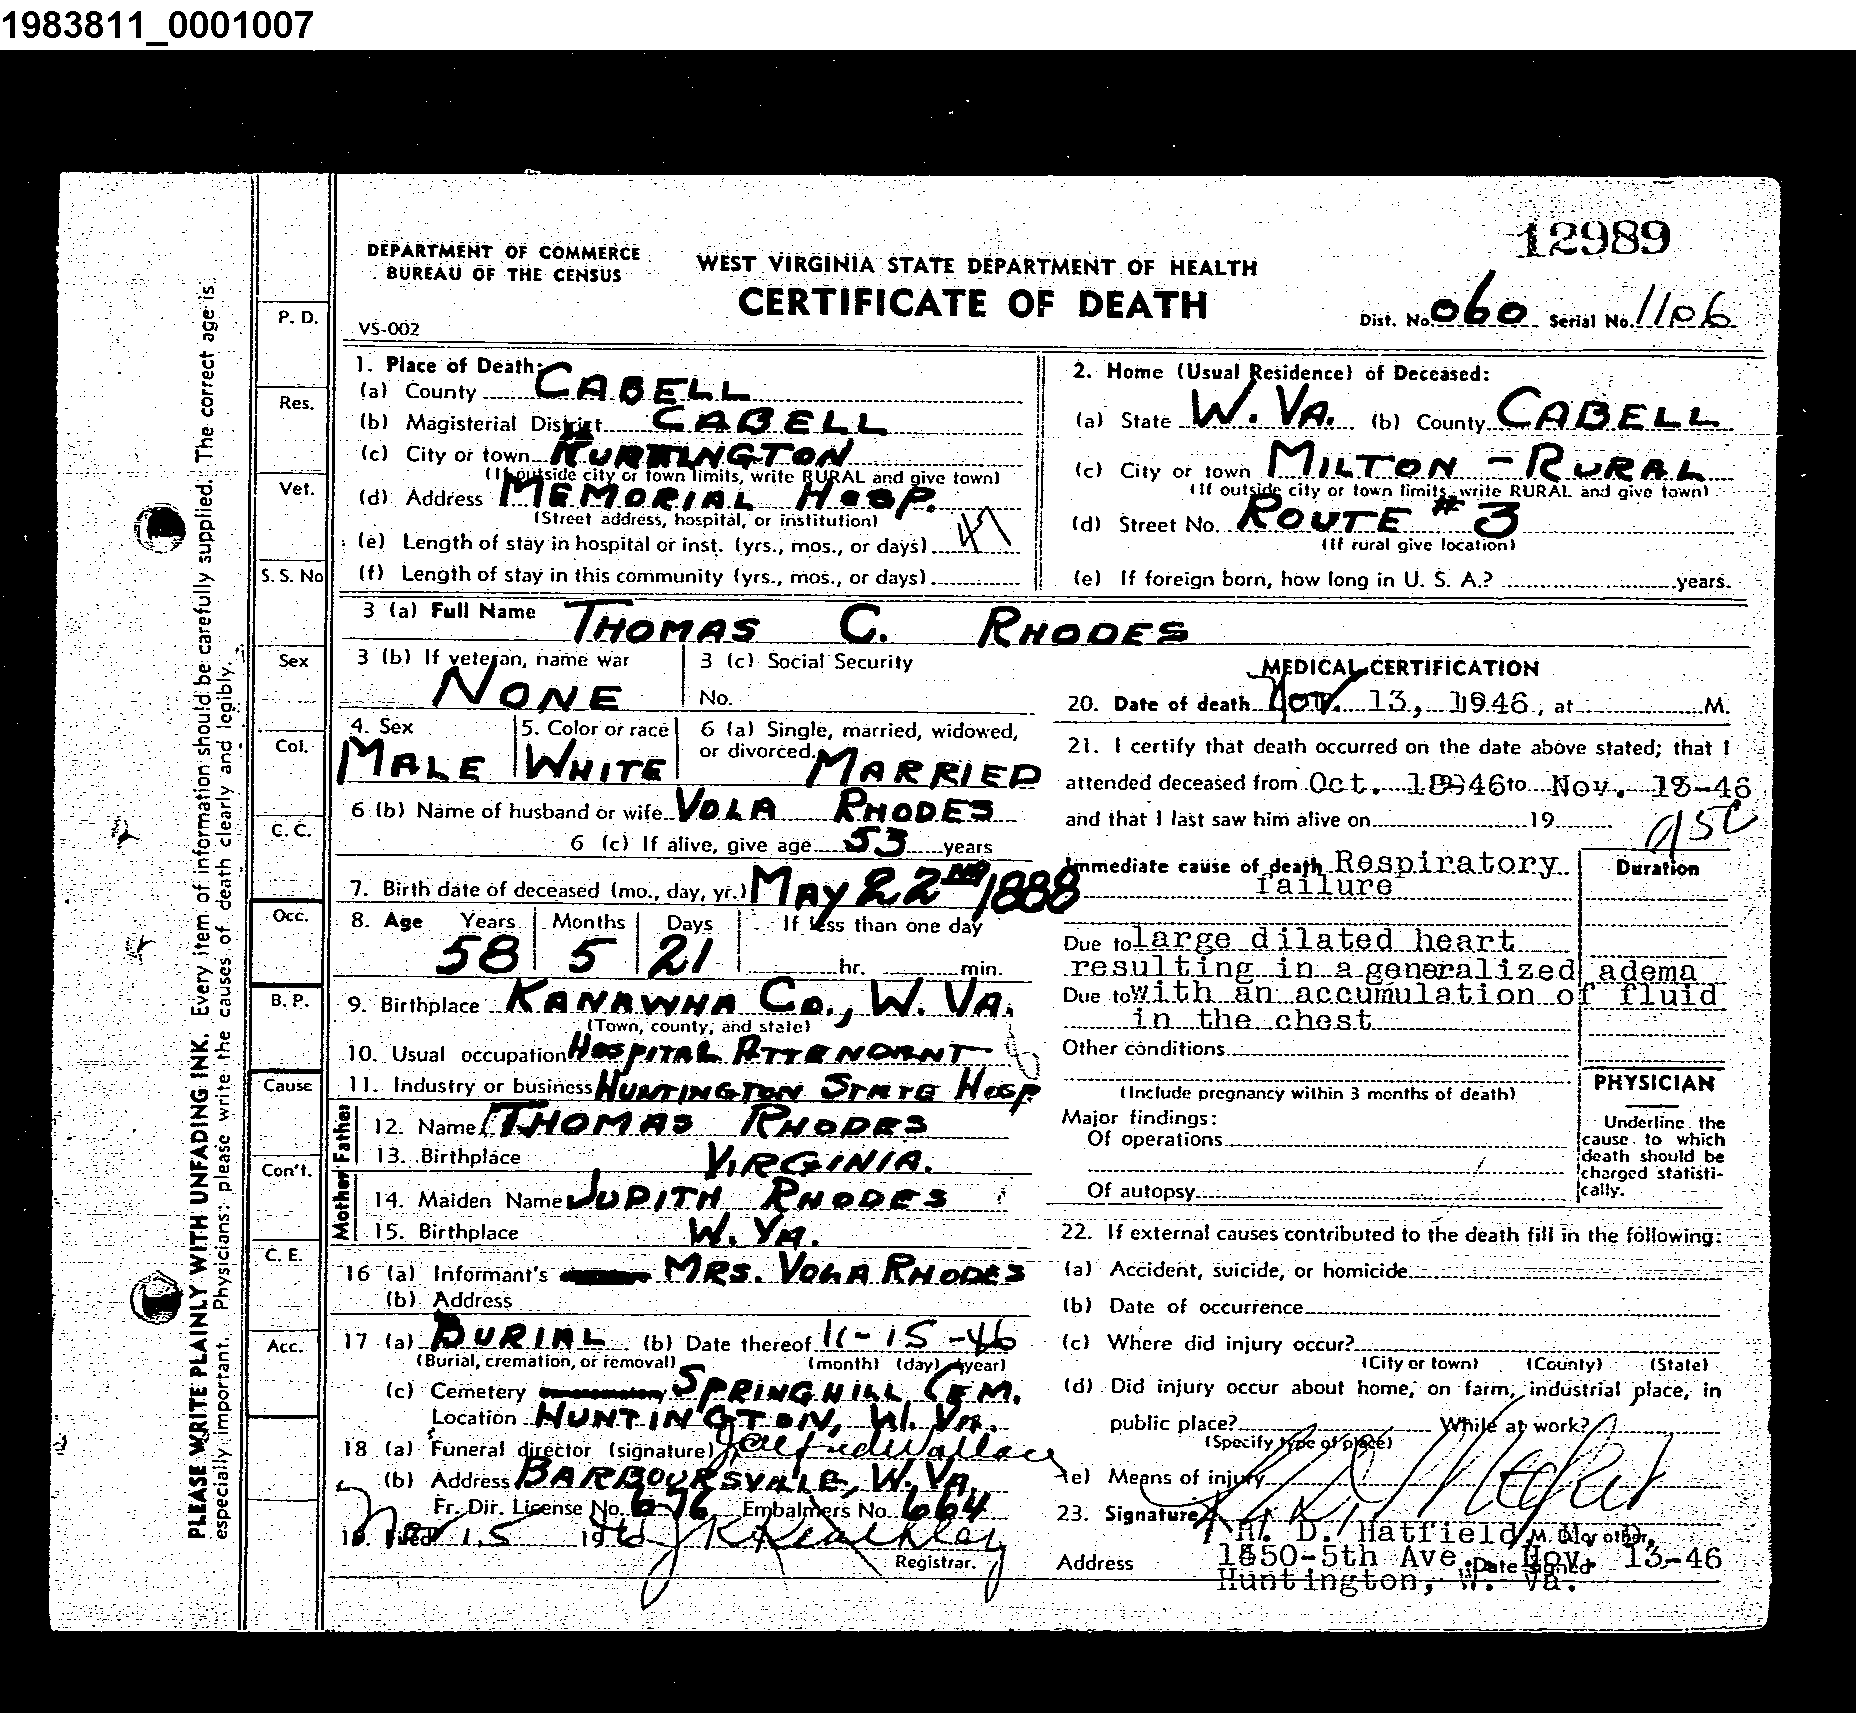 1983811_0001007
12989
DEPARTMENT OF COMMERCE
BUREAU OF THE CENSUS
WEST VIRGINIA STATE DEPARTMENT OF HEALTH
CERTIFICATE OF DEATH
VS-002
Dist. No. 060 Serial No. 1106
PLEASE WRITE PLAINLY WITH UNFADING INK. Every item of information should be carefully supplied. The correct age is
especially important. Physicians: please write the causes of death clearly and legibly.
P. D.
Res.
Vet.
S. S. No
Sex
Col.
C. C.
Occ.
B. P.
Cause
Con't.
C. E.
Acc.
1. Place of Death:
(a) County CABELL
(b) Magisterial District CABELL
(c) City or town HUNTINGTON
(If outside city or town limits, write RURAL and give town)
(d) Address MEMORIAL HOSP.
(Street address, hospital, or institution)
(e) Length of stay in hospital or inst. (yrs., mos., or days)
(f) Length of stay in this community (yrs., mos., or days)
2. Home (Usual Residence) of Deceased:
(a) State W. VA. (b) County CABELL
(c) City or town MILTON - RURAL
(If outside city or town limits, write RURAL and give town)
(d) Street No. ROUTE # 3
(If rural give location)
(e) If foreign born, how long in U. S. A.? years.
3 (a) Full Name THOMAS C. RHODES
3 (b) If veteran, name war NONE
3 (c) Social Security No.
4. Sex MALE
5. Color or race WHITE
6 (a) Single, married, widowed, or divorced. MARRIED
6 (b) Name of husband or wife VOLA RHODES
6 (c) If alive, give age 53 years
7. Birth date of deceased (mo., day, yr.) MAY 22ND 1888
8. Age Years Months Days If less than one day
58 5 21 hr. min.
9. Birthplace KANAWHA CO., W. VA.
(Town, county, and state)
10. Usual occupation HOSPITAL ATTENDANT
11. Industry or business HUNTINGTON STATE HOSP
Father
12. Name THOMAS RHODES
13. Birthplace VIRGINIA.
Mother
14. Maiden Name JUDITH RHODES
15. Birthplace W. VA.
16 (a) Informant's MRS. VOLA RHODES
(b) Address
17 (a) BURIAL (b) Date thereof 11-15-46
(Burial, cremation, or removal) (month) (day) (year)
(c) Cemetery SPRINGHILL CEM.
Location HUNTINGTON, W. VA.
18 (a) Funeral director (signature) J Alfred Wallace
(b) Address BARBOURSVILLE, W. VA.
Fr. Dir. License No. 676 Embalmers No. 664
19. Filed Nov 15 1946
Registrar.
MEDICAL CERTIFICATION
20. Date of death Nov. 13, 1946, at M.
21. I certify that death occurred on the date above stated; that I
attended deceased from Oct. 46 to Nov. 13-46
and that I last saw him alive on 19
Immediate cause of death Respiratory
failure
Duration
Due to large dilated heart
resulting in a generalized adema
Due to with an accumulation of fluid
in the chest
Other conditions
(Include pregnancy within 3 months of death)
Major findings:
Of operations
Of autopsy
PHYSICIAN
Underline the
cause to which
death should be
charged statisti-
cally.
22. If external causes contributed to the death fill in the following:
(a) Accident, suicide, or homicide
(b) Date of occurrence
(c) Where did injury occur?
(City or town) (County) (State)
(d) Did injury occur about home, on farm, industrial place, in
public place? While at work?
(Specify type of place)
(e) Means of injury
23. Signature H. D. Hatfield, M. D. or other
Address 1650-5th Ave. Date signed Nov. 13-46
Huntington, W. Va.